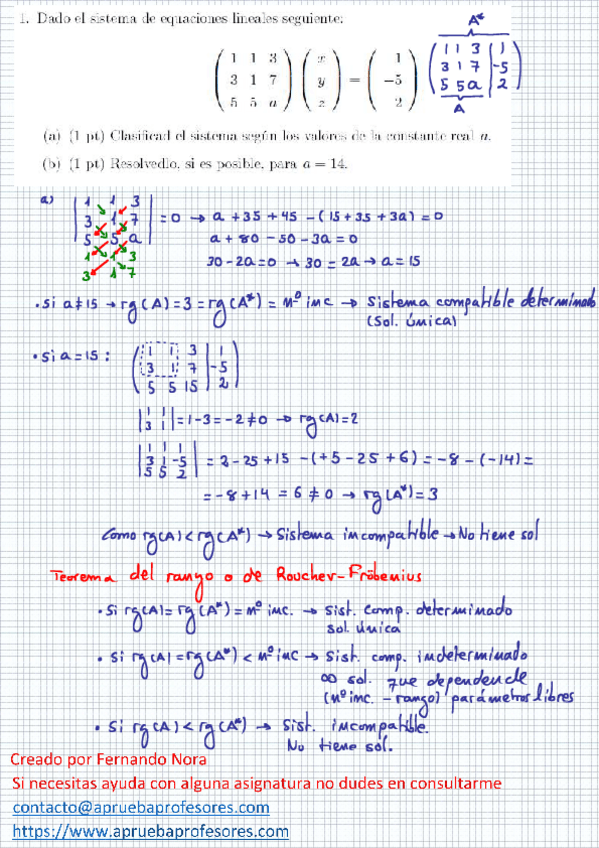 1. Dado el sistema de ecuaciones lineales seguiente:
A*
( 1 1 3 ) ( x ) = ( 1 ) ( 1 1 3 | 1 )
( 3 1 7 ) ( y ) ( -5 ) ( 3 1 7 | -5 )
( 5 5 a ) ( z ) ( 2 ) ( 5 5 a | 2 )
A
(a) (1 pt) Clasificad el sistema según los valores de la constante real a.
(b) (1 pt) Resolvedlo, si es posible, para a = 14.
a) | 1 1 3 |
| 3 1 7 | = 0 → a + 35 + 45 - (15 + 35 + 3a) = 0
| 5 5 a | a + 80 - 50 - 3a = 0
1 1 3
3 1 7 30 - 2a = 0 → 30 = 2a → a = 15
• Si a ≠ 15 → rg(A) = 3 = rg(A*) = nº inc → Sistema compatible determinado
(Sol. única)
• Si a = 15 : ( 1 1 3 | 1 )
( 3 1 7 | -5 )
( 5 5 15 | 2 )
| 1 1 |
| 3 1 | = 1 - 3 = -2 ≠ 0 → rg(A) = 2
| 1 1 1 |
| 3 1 -5 | = 2 - 25 + 15 - (+5 - 25 + 6) = -8 - (-14) =
| 5 5 2 |
= -8 + 14 = 6 ≠ 0 → rg(A*) = 3
Como rg(A) < rg(A*) → Sistema incompatible → No tiene sol
Teorema del rango o de Rouchev-Fröbenius
• Si rg(A) = rg(A*) = nº inc. → Sist. comp. determinado
sol. única
• Si rg(A) = rg(A*) < nº inc → Sist. comp. indeterminado
∞ sol. que dependen de
(nº inc. - rango) parámetros libres
• Si rg(A) < rg(A*) → Sist. incompatible.
No tiene sol.
Creado por Fernando Nora
Si necesitas ayuda con alguna asignatura no dudes en consultarme
contacto@apruebaprofesores.com
https://www.apruebaprofesores.com